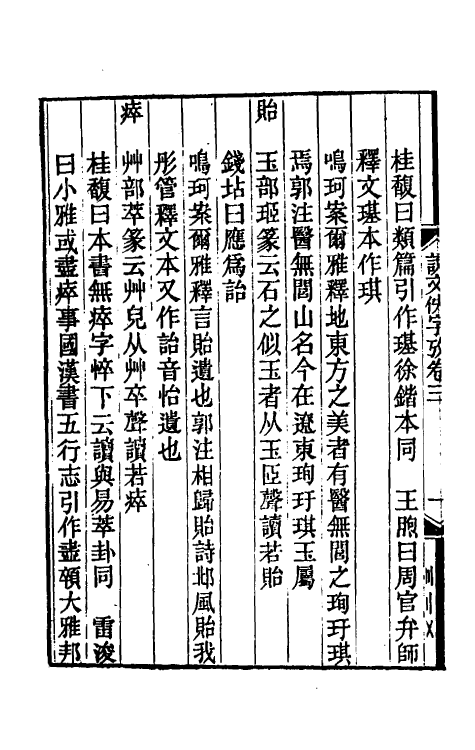 桂馥曰類篇引作璂徐鍇本同　王煦曰周官弁師
釋文璂本作琪
鳴珂案爾雅釋地東方之美者有醫無閭之珣玗琪
焉郭注醫無閭山名今在遼東珣玗琪玉屬
貽　玉部㺿篆云石之似玉者从玉𦣞聲讀若貽
錢坫曰應爲詒
鳴珂案爾雅釋言貽遺也郭注相歸貽詩邶風貽我
彤管釋文本又作詒音怡遺也
瘁　艸部萃篆云艸皃从艸卒聲讀若瘁
桂馥曰本書無瘁字悴下云讀與易萃卦同　雷浚
曰小雅或盡瘁事國漢書五行志引作盡頓大雅邦
說文佚字攷卷三